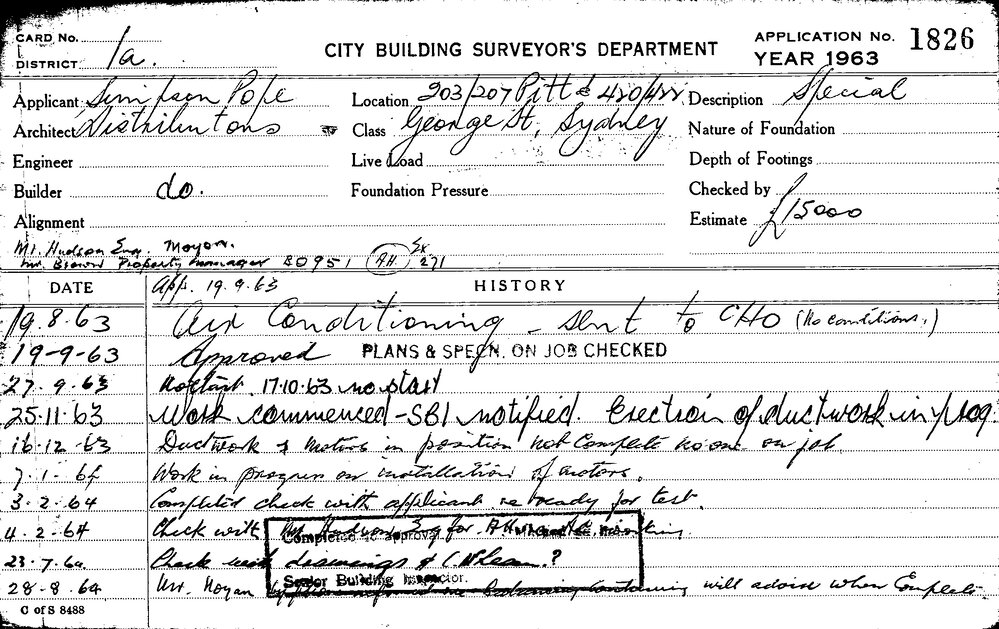 CARD No.
DISTRICT 1a.
CITY BUILDING SURVEYOR'S DEPARTMENT
APPLICATION No. 1826
YEAR 1963
Applicant Simpson Pope
Location 203/207 Pitt & 420/422
Description Special
Architect Distributors
Class George St, Sydney
Nature of Foundation
Engineer
Live Load
Depth of Footings
Builder do.
Foundation Pressure
Checked by
Alignment
Estimate £15000
Mr. Hudson Eng. Moyan.
Mr. Brown Property Manager B0951 AH Ex 271
DATE App. 19.9.63 HISTORY
19.8.63 Air Conditioning - sent to CHO (No conditions.)
19-9-63 Approved PLANS & SPECN. ON JOB CHECKED
27.9.63 No start 17.10.63 no start
25.11.63 Work commenced - SBI notified. Erection of ductwork in prog.
16-12-63 Ductwork & motors in position not complete no one on job.
7-1-64 Work in progress on installation of motors.
3-2-64 Completed check with applicant re ready for test.
4-2-64 Check with Mr Hudson Eng for
23-7-64 Check with drawings &
28-8-64 Mr. Moyan will advise when Complete
Completed approval.
Senior Building Inspector.
C of S 8488